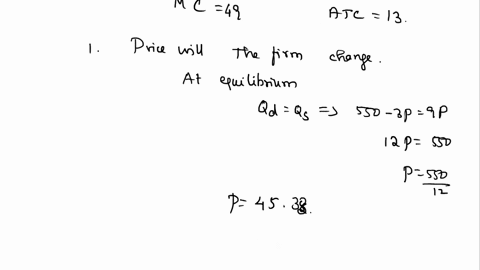 MC = 49 ATC = 13.
1. Price will The firm change.
At equilibrium
Qd = Qs => 550 - 3p = 9P
12p = 550
P = 550
12
P = 45.